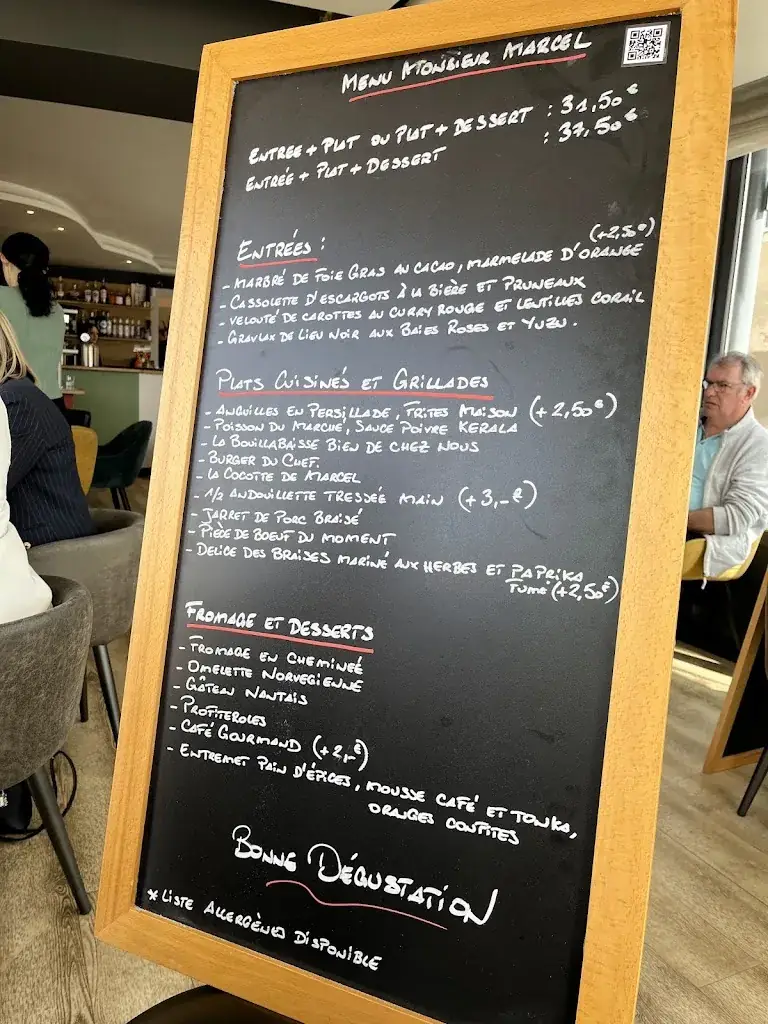 MENU MONSIEUR MARCEL
ENTREE + PLAT OU PLAT + DESSERT : 31,50€
ENTRÉE + PLAT + DESSERT : 37,50€
ENTRÉES :
(+2,50€)
- MARBRÉ DE FOIE GRAS AU CACAO, MARMELADE D'ORANGE
- CASSOLETTE D'ESCARGOTS À LA BIÈRE ET PRUNEAUX
- VELOUTÉ DE CAROTTES AU CURRY ROUGE ET LENTILLES CORAIL
- GRAVLAX DE LIEU NOIR AUX BAIES ROSES ET YUZU.
PLATS CUISINÉS ET GRILLADES
- ANGUILLES EN PERSILLADE, FRITES MAISON (+2,50€)
- POISSON DU MARCHÉ, SAUCE POIVRE KERALA
- LA BOUILLABAISSE BIEN DE CHEZ NOUS
- BURGER DU CHEF.
- LA COCOTTE DE MARCEL
- 1/2 ANDOUILLETTE TRESSÉE MAIN (+3,-€)
- JARRET DE PORC BRAISÉ
- PIÈCE DE BOEUF DU MOMENT
- DELICE DES BRAISES MARINÉ AUX HERBES ET PAPRIKA
FUMÉ (+2,50€)
FROMAGE ET DESSERTS
- FROMAGE EN CHEMINEÉ
- OMELETTE NORVEGIENNE
- GÂTEAU NANTAIS
- PROFITEROLES
- CAFÉ GOURMAND (+2,-€)
- ENTREMET PAIN D'ÉPICES, MOUSSE CAFÉ ET TONKA,
ORANGES CONFITES
BONNE DÉGUSTATION
* LISTE ALLERGÈNES DISPONIBLE